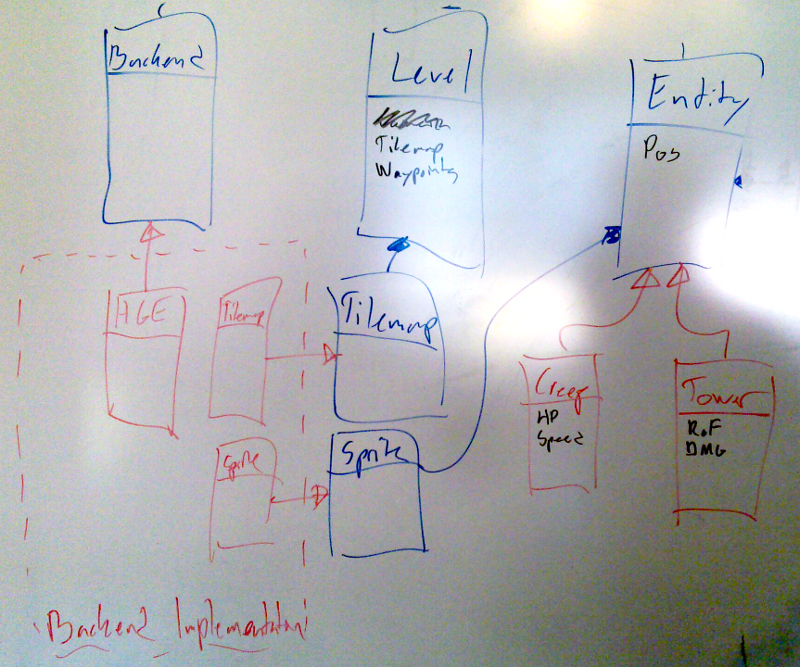 Backend
Level
Tilemap
Waypoints
Entity
Pos
AGE
Tilemap
Tilemap
Sprite
Sprite
Creep
HP
Speed
Tower
RoF
DMG
Backend Implementation